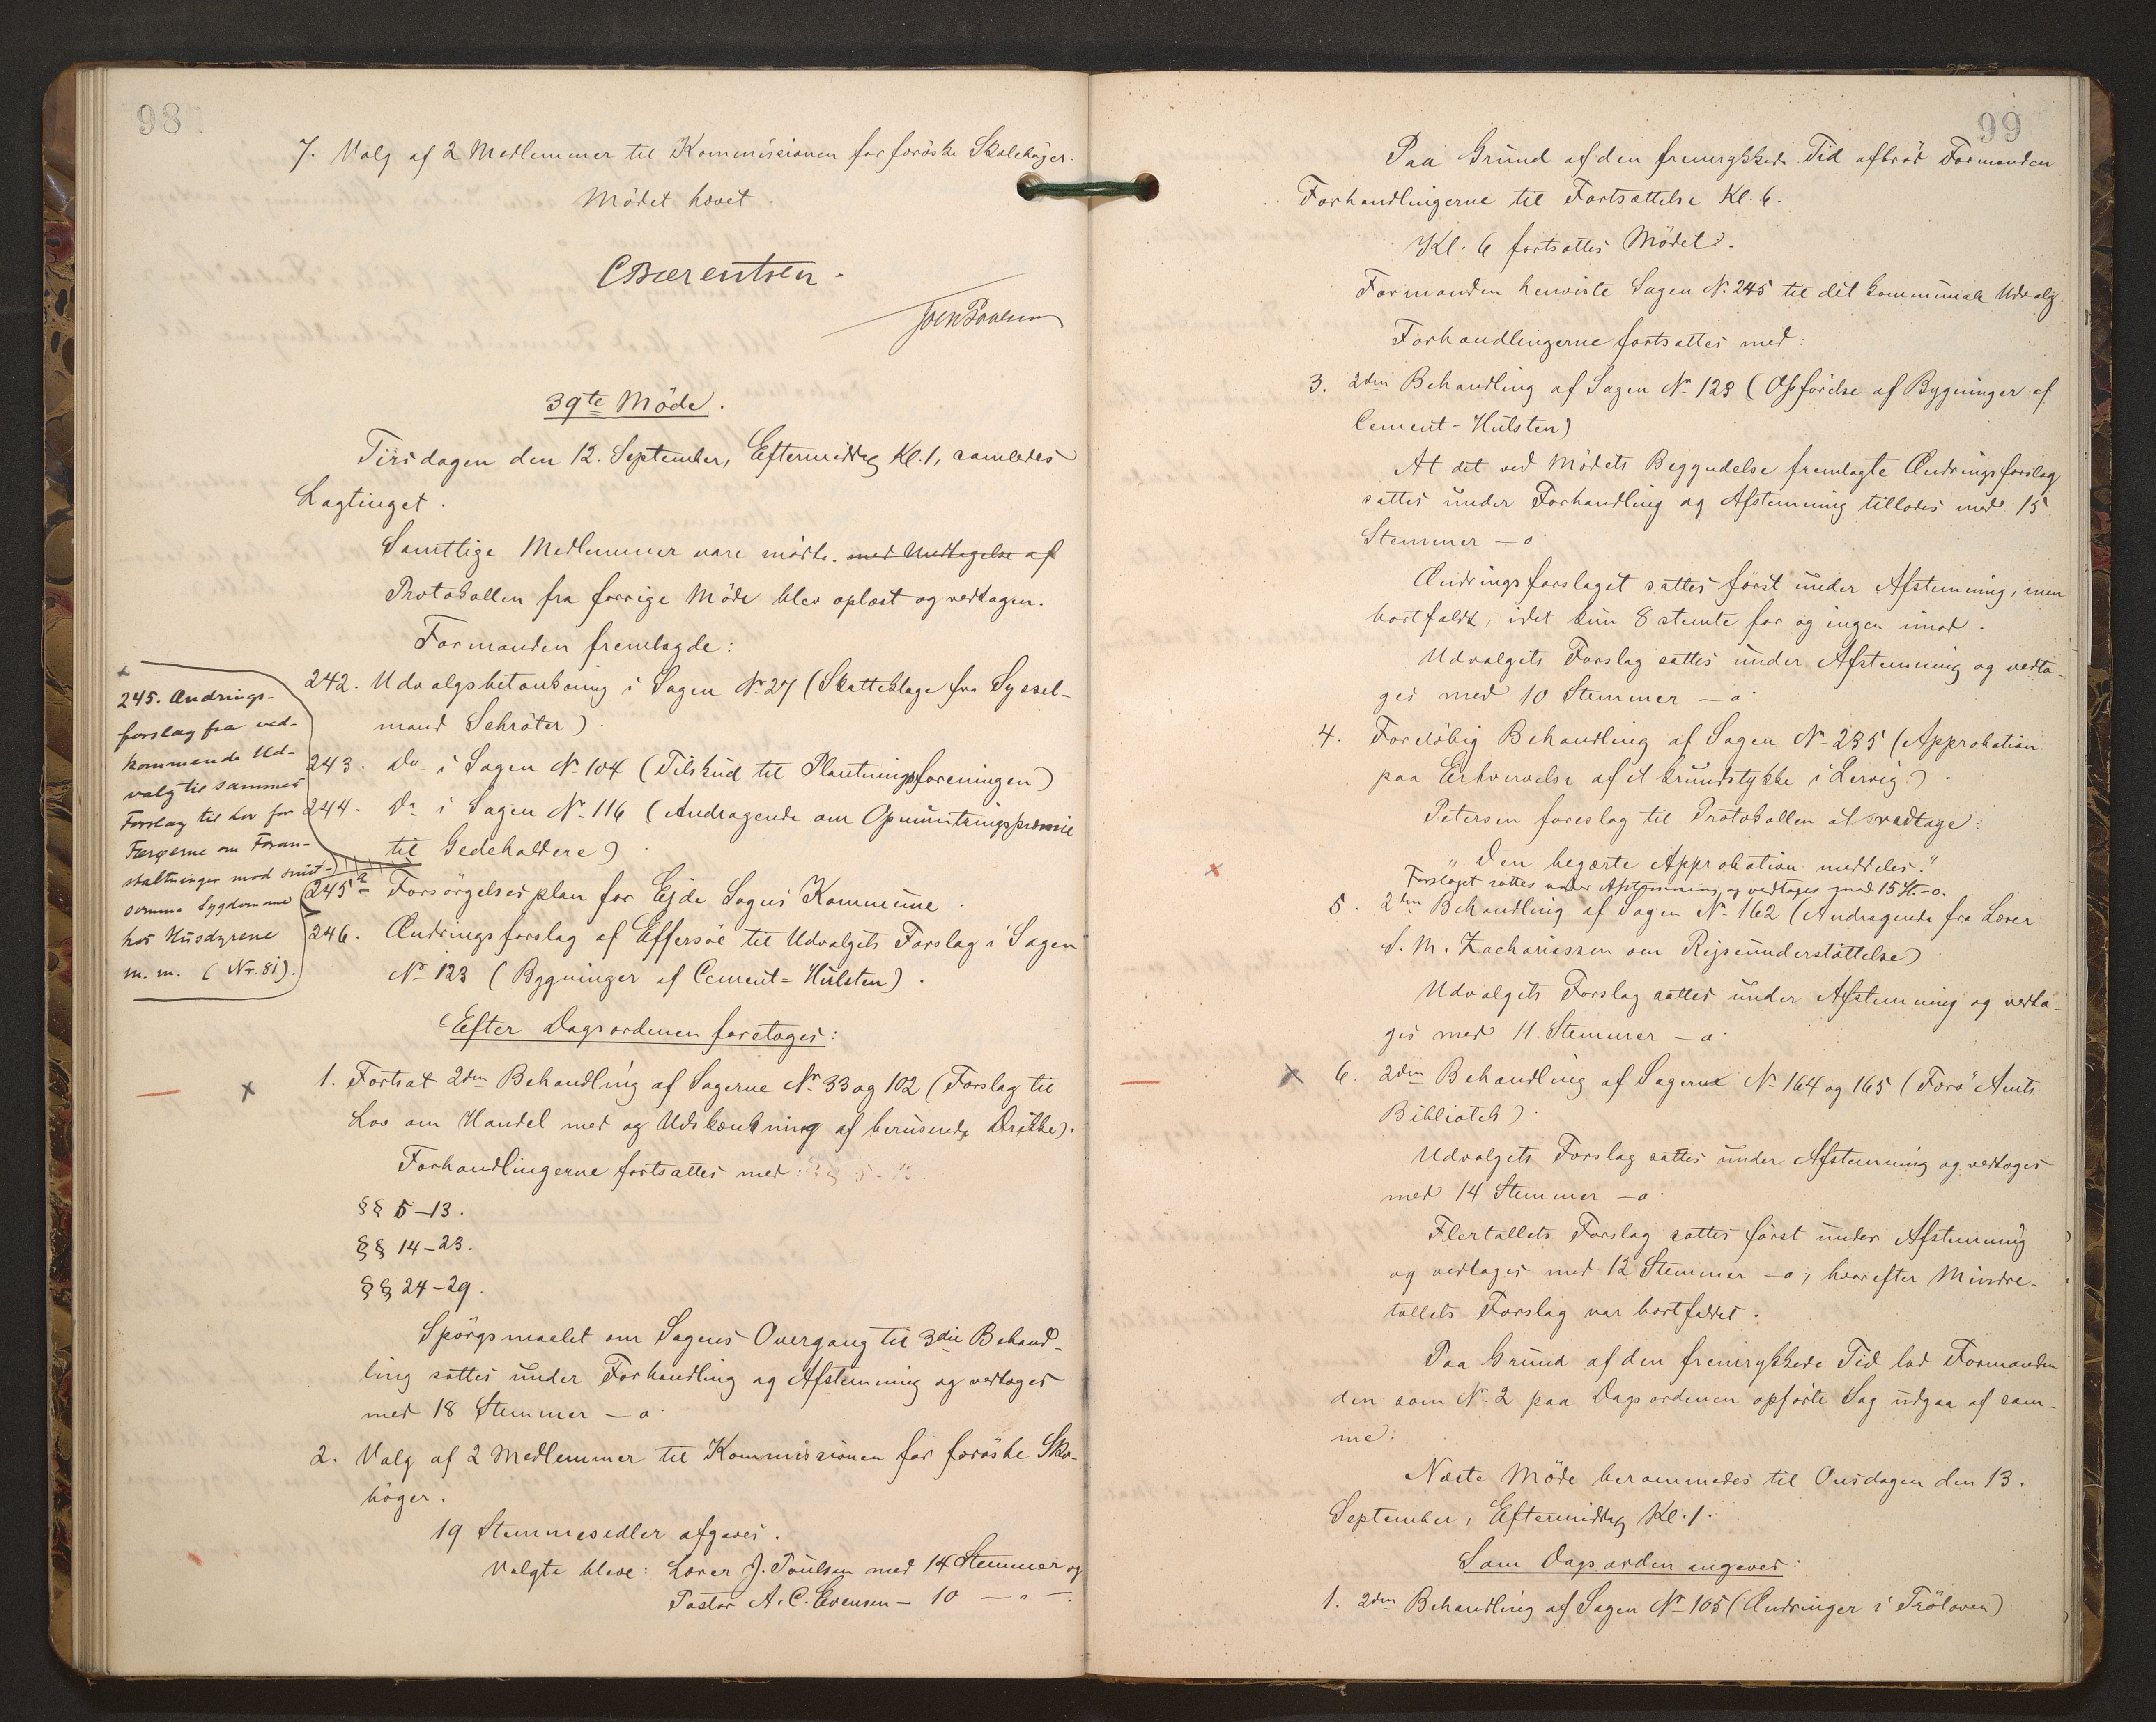 98
7. Valg af 2 Medlemmer til Kommissionen for færøske Skolebøger.
Mødet hævet.
C Bærentsen.
39te Møde.
Tirsdagen den 12. September, Eftermiddag Kl. 1, samledes
Lagtinget.
Samtlige Medlemmer vare mødte. med Undtagelse af
Protokollen fra forrige Møde blev oplæst og vedtagen.
Formanden fremlagde:
242. Udvalgsbetænkning i Sagen No 27 (Skatteklage fra Syssel-
mand Schrøter).
243. Do i Sagen No 104 (Tilskud til Plantningsforeningen)
244. Do i Sagen No 116 (Andragende om Opmuntringspræmie
til Gedeholdere).
245a Forsørgelsesplan for Ejde Sogns Kommune.
246. Ændringsforslag af Effersøe til Udvalgets Forslag i Sagen
No 123 (Bygninger af Cement-Hulsten).
x
245. Ændrings-
forslag fra ved-
kommende Ud-
valg til sammes
Forslag til Lov for
Færøerne om Foran-
staltninger mod smit-
somme Sygdomme
hos Husdyrene
m. m. (Nr. 81).
Efter Dagsordenen foretoges:
x 1. Fortsat 2den Behandling af Sagerne Nr 33 og 102 (Forslag til
Lov om Handel med og Udskænkning af berusende Drikke).
Forhandlingerne fortsattes med:
§§ 5-13.
§§ 14-23.
§§ 24-29.
Spørgsmaalet om Sagens Overgang til 3die Behand-
ling sattes under Forhandling og Afstemning og vedtoges
med 18 Stemmer - o.
2. Valg af 2 Medlemmer til Kommissionen for færøske Sko-
bøger.
19 Stemmesedler afgaves.
Valgte bleve: Lærer J. Poulsen med 14 Stemmer og
Pastor A. C. Evensen - 10 - " -.
99
Paa Grund af den fremrykkede Tid afbrød Formanden
Forhandlingerne til Fortsættelse Kl. 6.
Kl. 6 fortsattes Mødet.
Formanden henviste Sagen No 245 til det kommunale Udvalg.
Forhandlingerne fortsattes med:
3. 2den Behandling af Sagen No 123 (Opførelse af Bygninger af
Cement-Hulsten)
At det ved Mødets Begyndelse fremlagte Ændringsforslag
sattes under Forhandling og Afstemning tillodes med 15
Stemmer - o.
Ændringsforslaget sattes først under Afstemning, men
bortfaldt, idet kun 8 stemte for og ingen imod.
Udvalgets Forslag sattes under Afstemning og vedto-
ges med 10 Stemmer - o.
4. Foreløbig Behandling af Sagen No 235 (Approbation
paa Erhvervelse af et Grundstykke i Lervig).
Petersen foreslog til Protokollen at vedtage:
x "Den begærte Approbation meddeles."
Forslaget sattes under Afstemning og vedtoges med 15 St. - o.
5. 2den Behandling af Sagen No 162 (Andragende fra Lærer
S. M. Zachariassen om Rejseunderstøttelse)
Udvalgets Forslag sattes under Afstemning og vedto-
ges med 11 Stemmer - o.
x 6. 2den Behandling af Sagerne No 164 og 165 (Færø Amts
Bibliotek)
Udvalgets Forslag sattes under Afstemning og vedtoges
med 14 Stemmer - o.
Flertallets Forslag sattes først under Afstemning
og vedtoges med 12 Stemmer - o, hvorefter Mindre-
tallets Forslag var bortfaldet.
Paa Grund af den fremrykkede Tid lod Formanden
den som No 2 paa Dagsordenen opførte Sag udgaa af sam-
me.
Næste Møde berammedes til Onsdagen den 13.
September, Eftermiddag Kl. 1.
Som Dagsorden angaves:
1. 2den Behandling af Sagen No 105 (Ændringer i Trøloven)